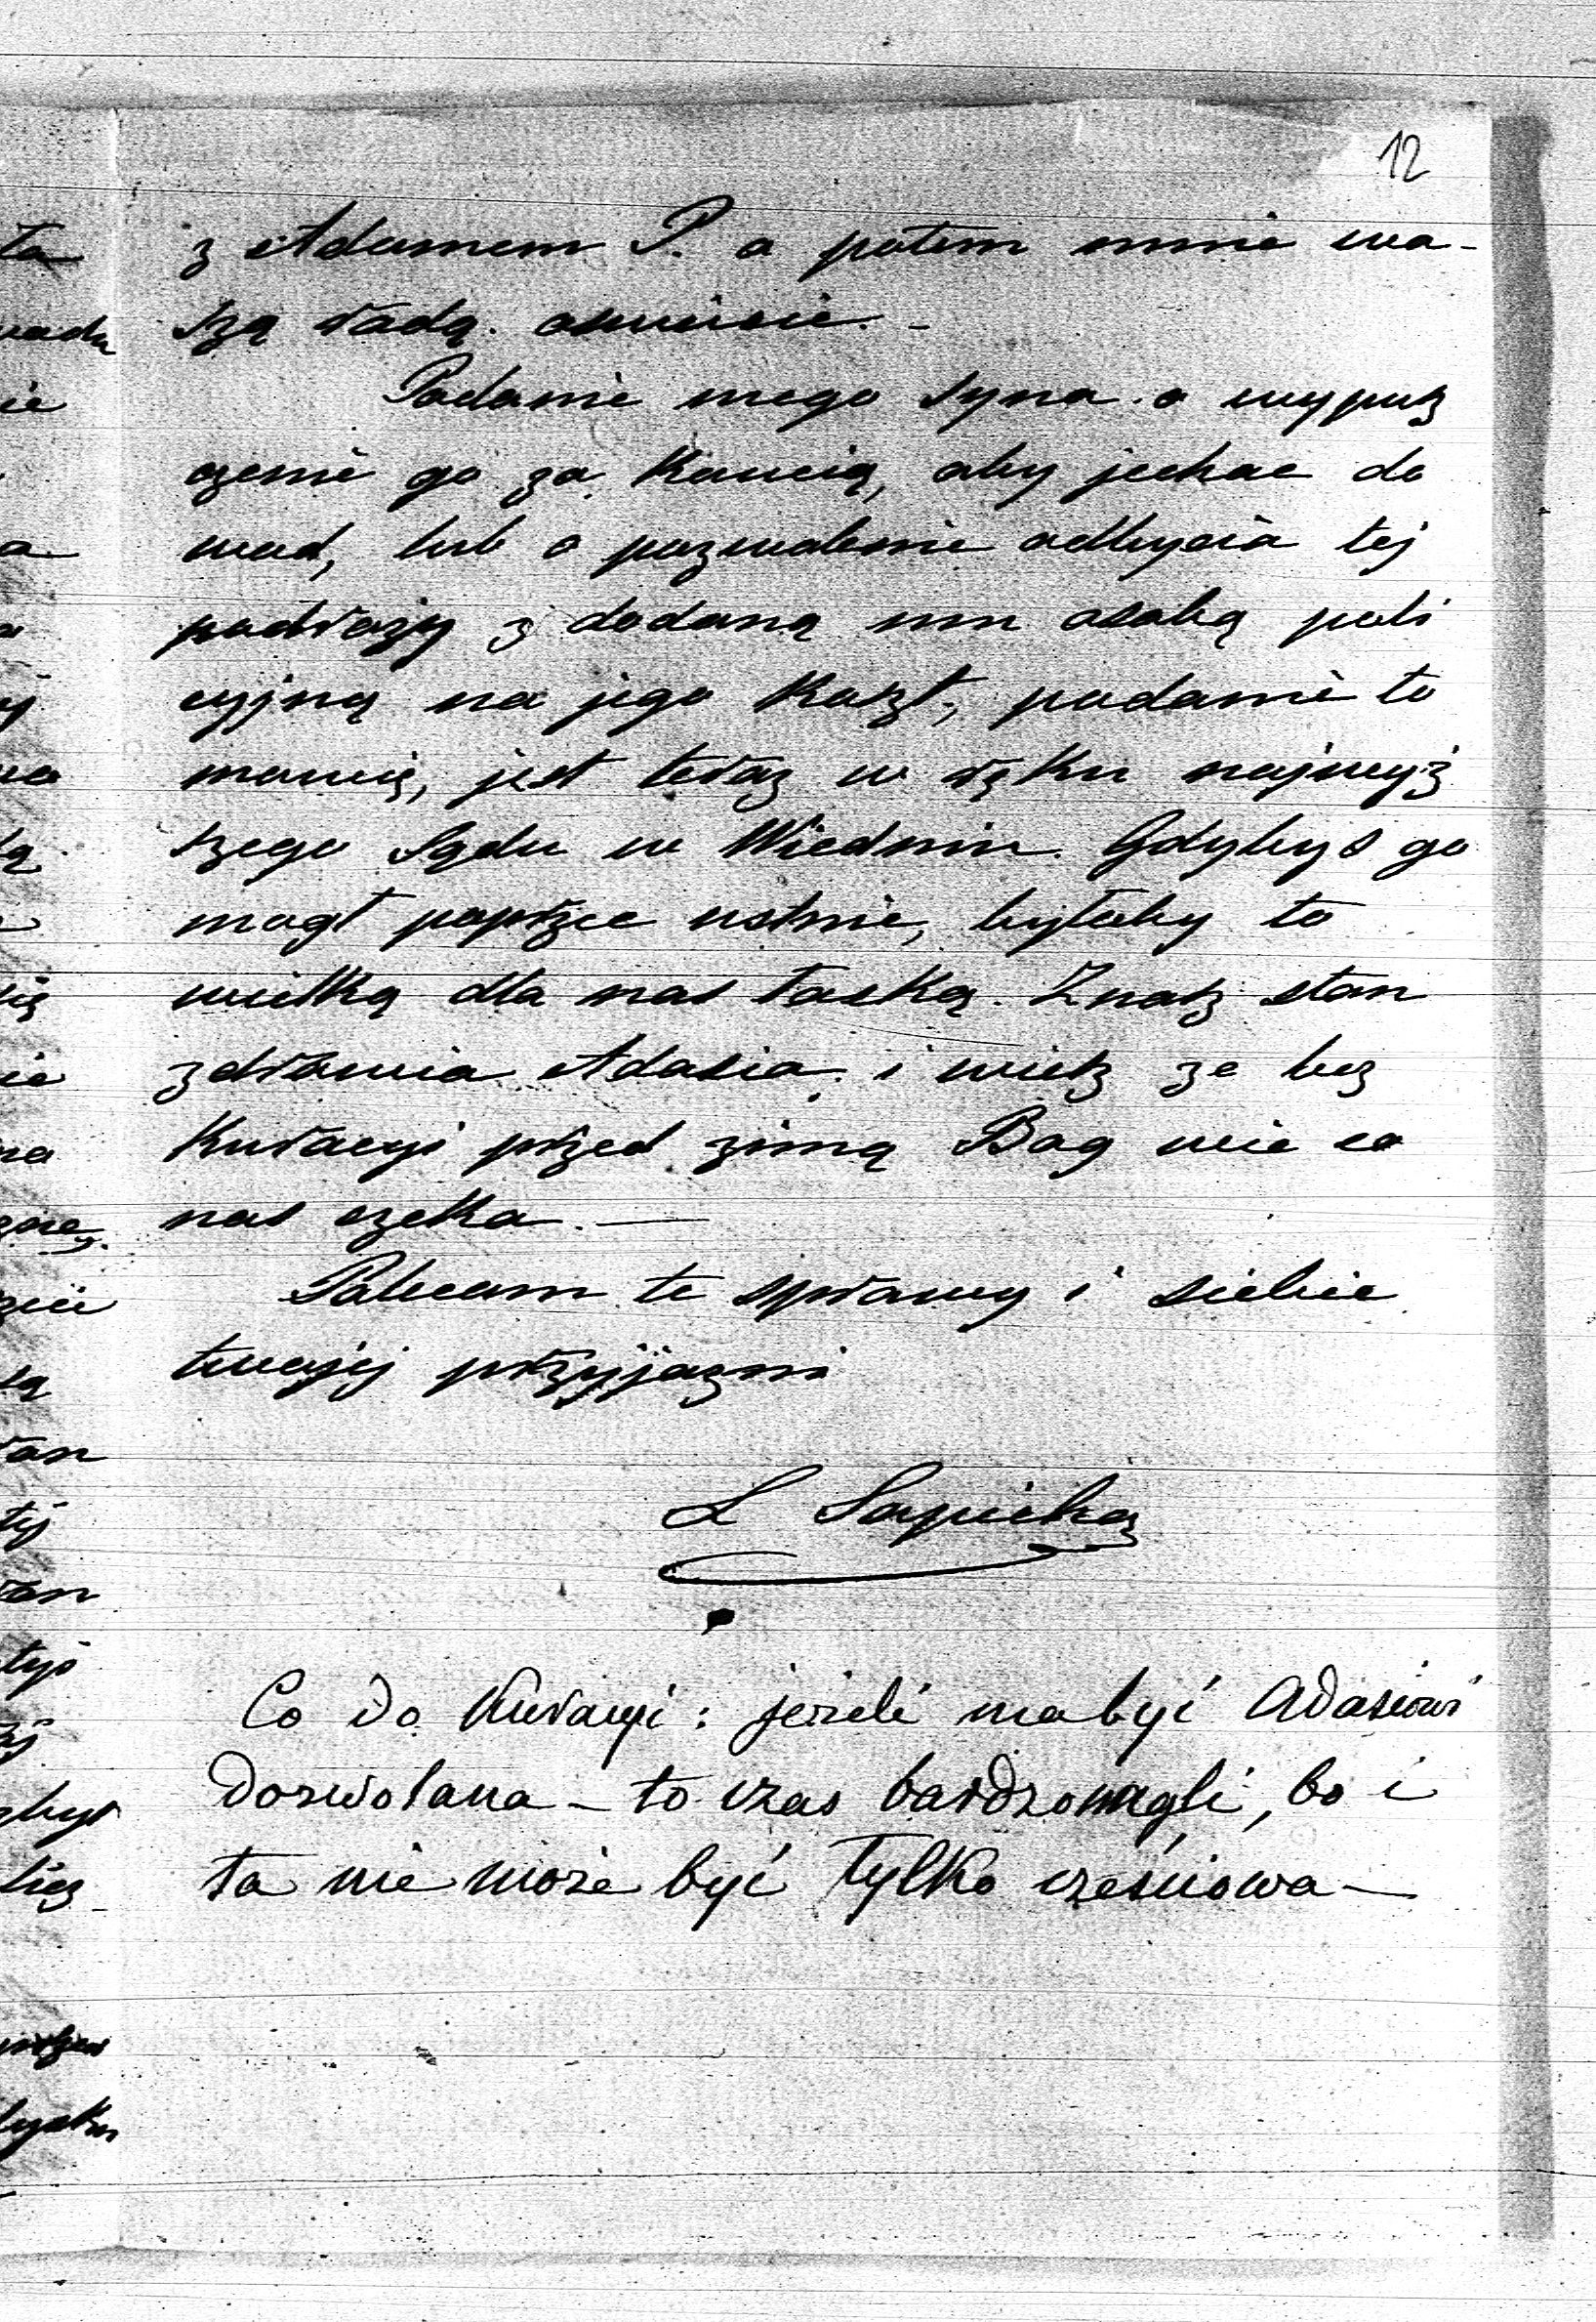 12
z Adamem P. a potem mnie wa-
szą radą oświecie. -
Podanie mego syna o wypusz
czenie go za Kaucią, aby jechac do
wod, lub o pozwolenie odbycia tej
podrozy z dodaną mu osobą poli
cyjną na jego Koszt, podanie to
mowię, jest teraz w ręku najwyż
szego Sądu w Wiedniu. Gdybys go
mogł poprzec ustnie, byłoby to
wielką dla nas łaską. Znasz stan
zdrowia Adasia i wiesz ze bez
Kuracyi przed zimą Bog wie co
nas czeka. —
Polecam te sprawy i siebie
twojej przyjazni
L Sapieha
Co do Kuracyi: jeżeli ma być Adasiowi
dozwolana – to czas bardzo nagli, bo i
ta nie może być tylko cześciowa —